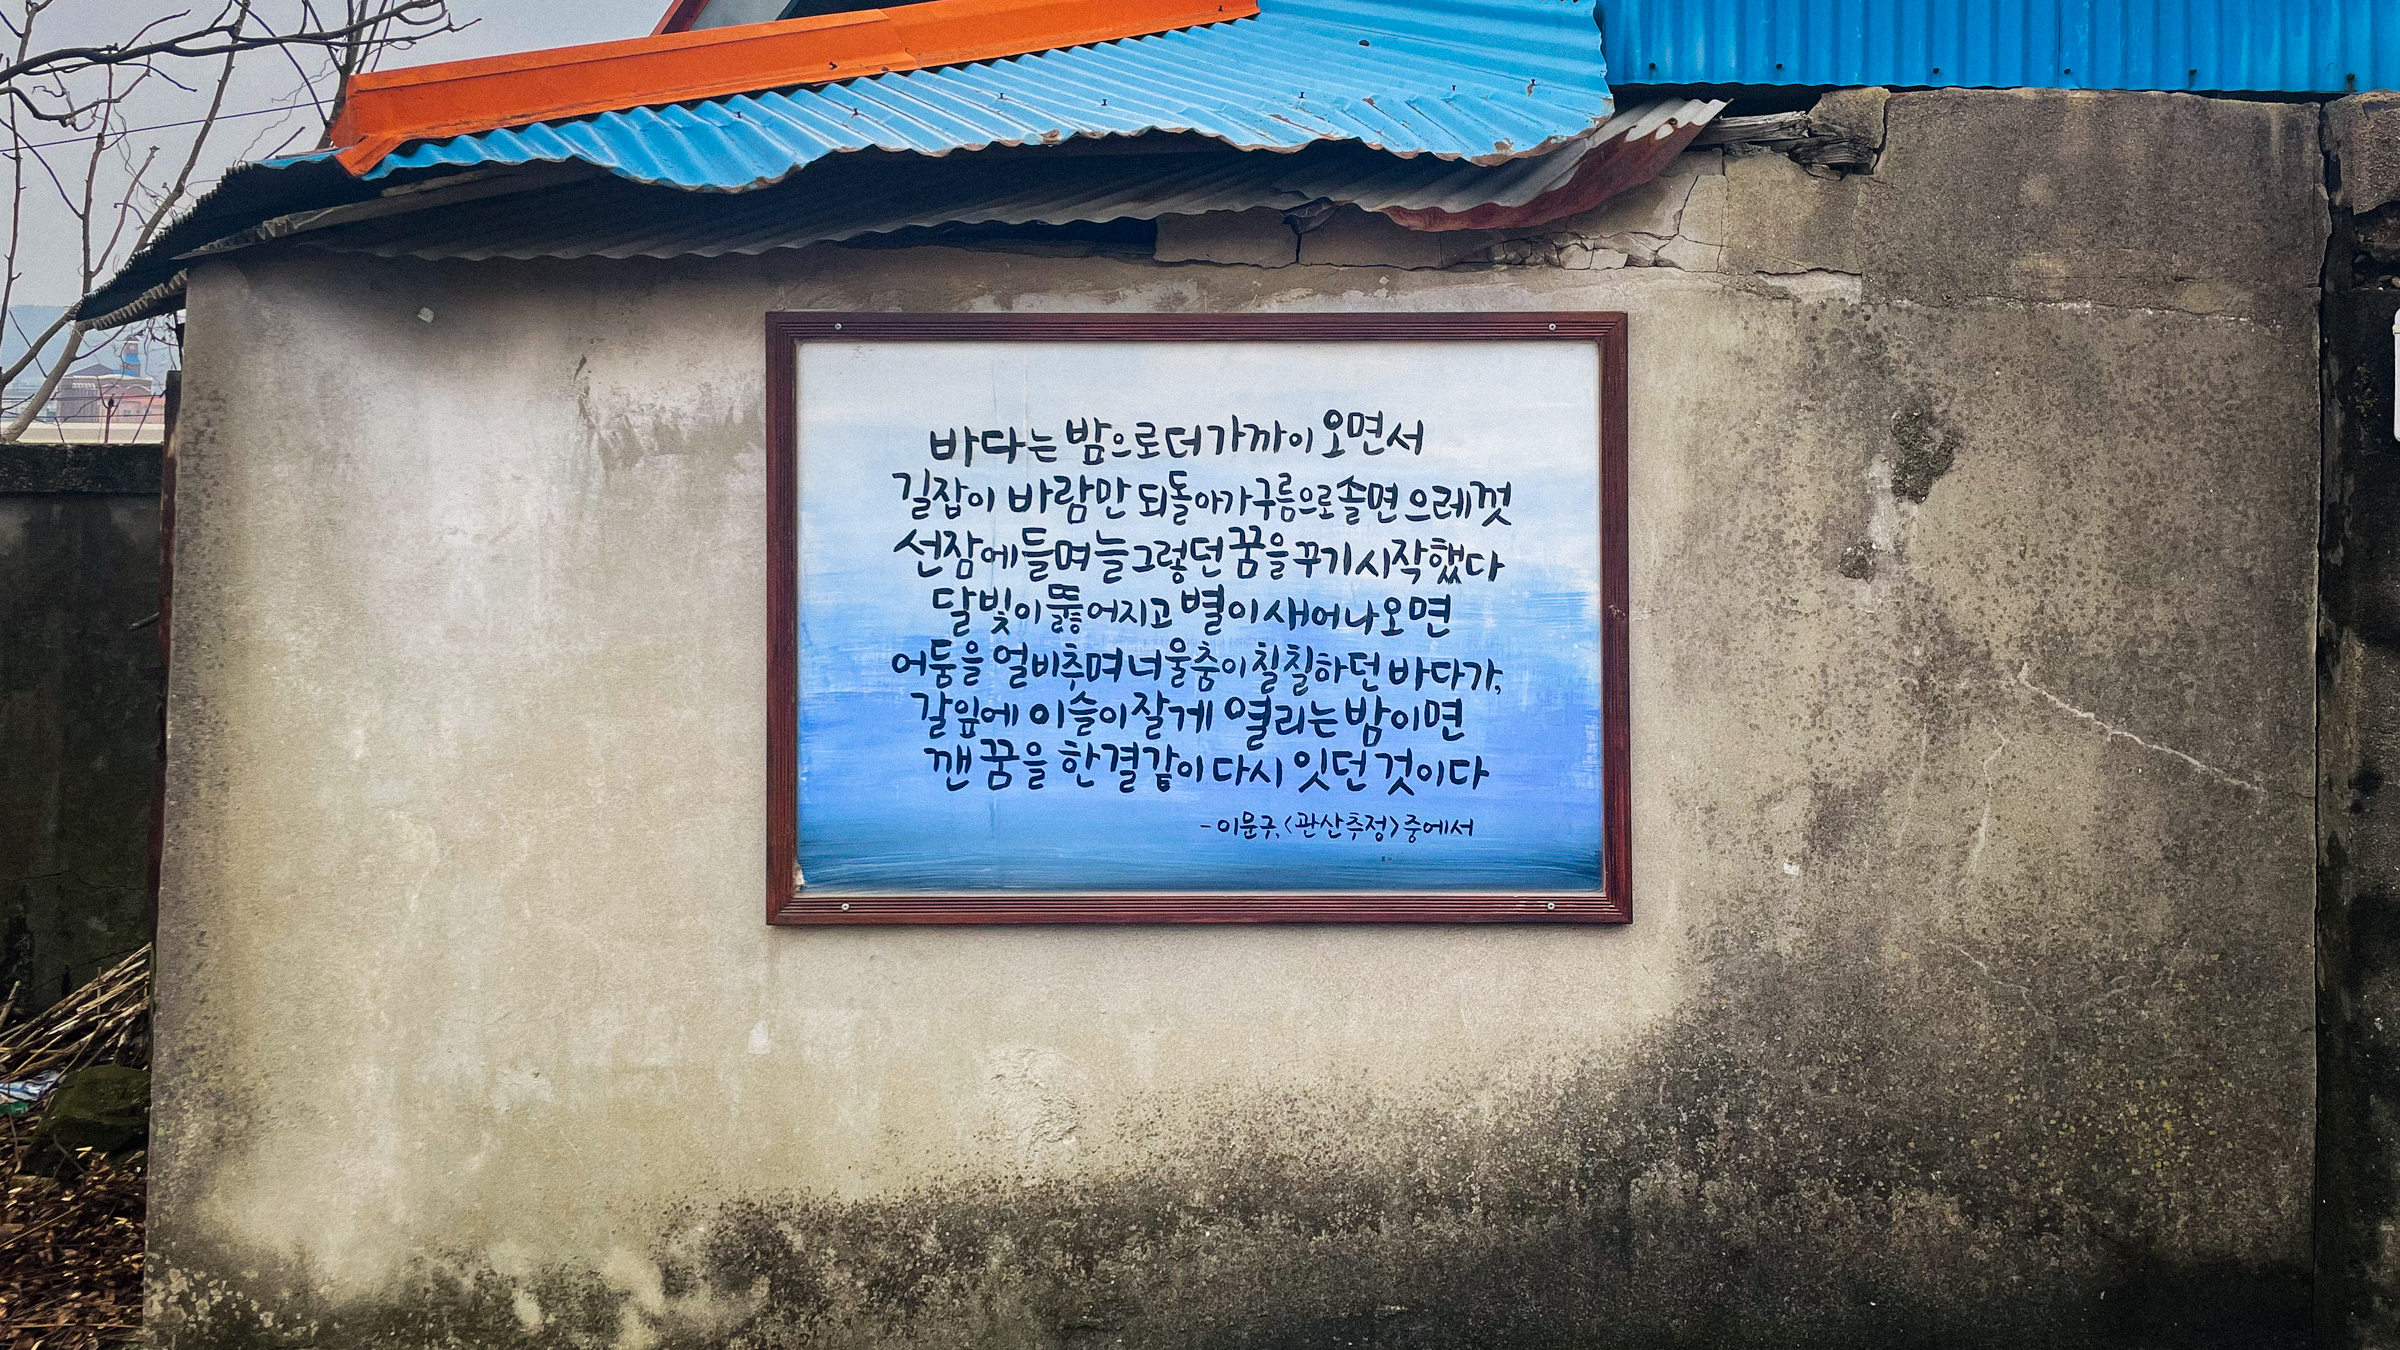 바다는 밤으로 더 가까이 오면서
길잡이 바람만 되돌아가 구름으로 졸면 으레껏
선잠에 들며 늘 그렇던 꿈을 꾸기 시작했다
달빛이 뚫어지고 별이 새어나오면
어둠을 얼비추며 너울춤이 칠칠하던 바다가,
갈잎에 이슬이 잘게 열리는 밤이면
깬 꿈을 한결같이 다시 잇던 것이다
- 이문구, <관산추정> 중에서